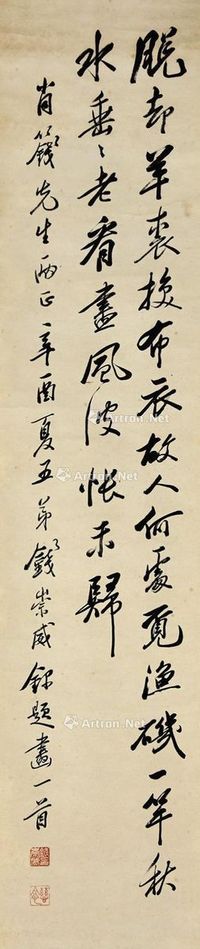 脱却羊裘换布衣故人何处觅渔矶一竿秋
水垂垂老看尽风波怅未归
肖篯先生两正辛酉夏五弟钱崇威录题画一首
Artron.Net